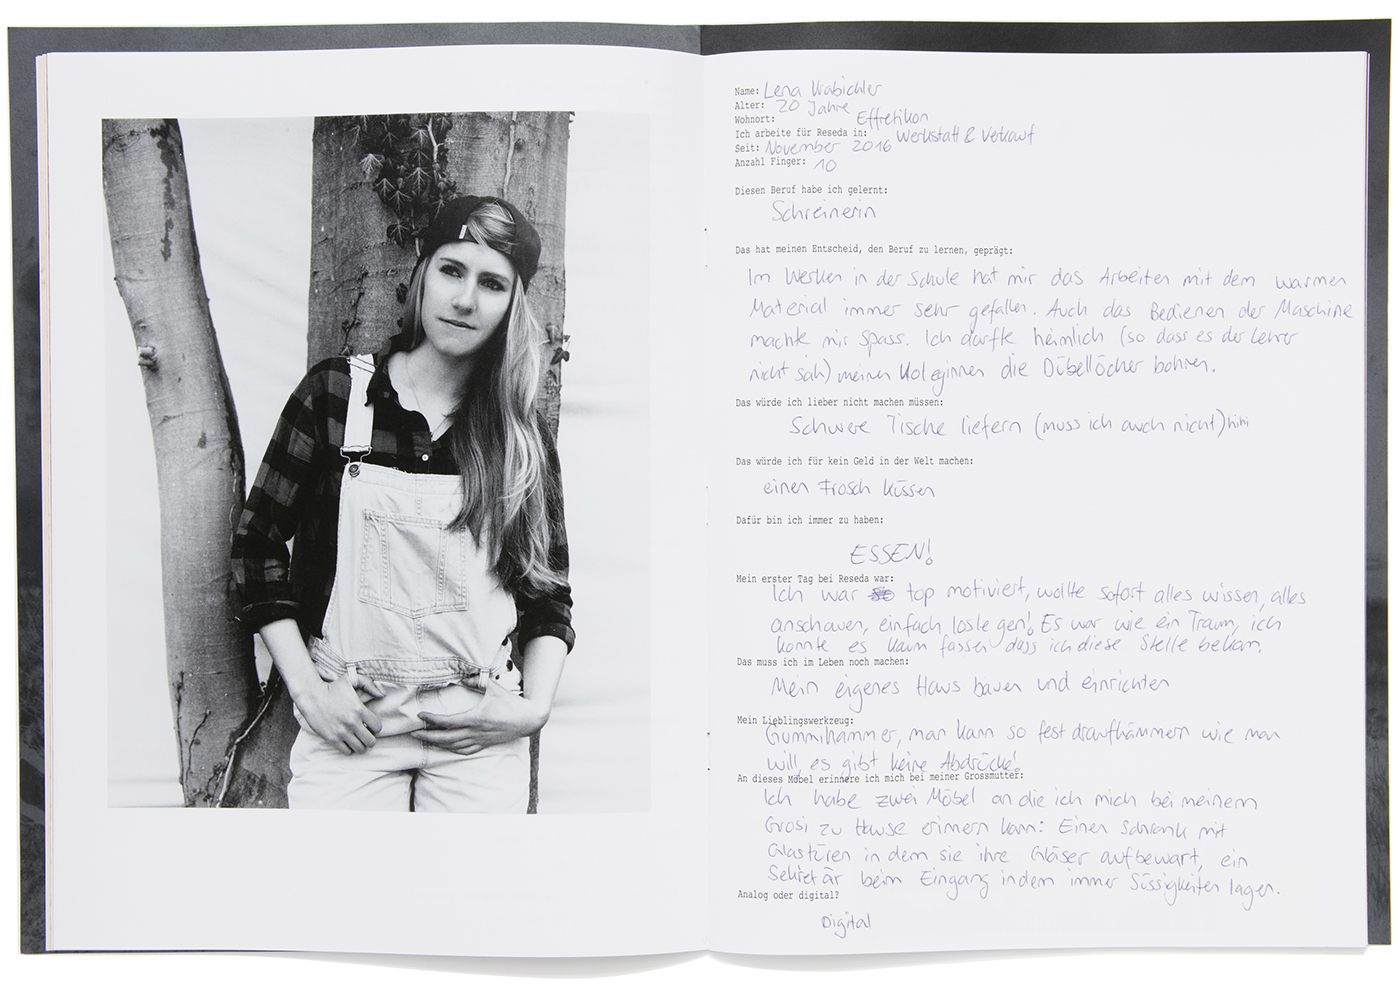 Name: Lena Wabichler
Alter: 20 Jahre
Wohnort: Effretikon
Ich arbeite für Reseda in: Werkstatt & Verkauf
Seit: November 2016
Anzahl Finger: 10
Diesen Beruf habe ich gelernt:
Schreinerin
Das hat meinen Entscheid, den Beruf zu lernen, geprägt:
Im Werken in der Schule hat mir das Arbeiten mit dem warmen
Material immer sehr gefallen. Auch das Bedienen der Maschine
machte mir spass. Ich durfte heimlich (so dass es der Lehrer
nicht sah) meinen Koleginnen die Dübellöcher bohren.
Das würde ich lieber nicht machen müssen:
Schwere Tische liefern (muss ich auch nicht) hihi
Das würde ich für kein Geld in der Welt machen:
einen Frosch küssen
Dafür bin ich immer zu haben:
ESSEN!
Mein erster Tag bei Reseda war:
Ich war top motiviert, wollte sofort alles wissen, alles
anschauen, einfach loslegen! Es war wie ein Traum, ich
konnte es kaum fassen dass ich diese Stelle bekam.
Das muss ich im Leben noch machen:
Mein eigenes Haus bauen und einrichten
Mein Lieblingswerkzeug:
Gummihammer, man kann so fest draufhämmern wie man
will, es gibt keine Abdrücke!
An dieses Möbel erinnere ich mich bei meiner Grossmutter:
Ich habe zwei Möbel an die ich mich bei meinem
Grosi zu Hause erinnern kann: Einen Schrank mit
Glastüren in dem sie ihre Gläser aufbewart, ein
Sekretär beim Eingang indem immer Süssigkeiten lagen.
Analog oder digital?
Digital